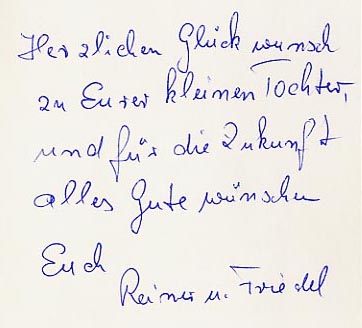 Herzlichen Glückwunsch
zu Eurer kleinen Tochter,
und für die Zukunft
alles Gute wünschen
Euch
Reiner u. Friedel